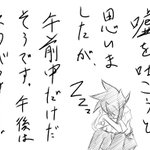 嘘を吐こうと
思いま
したが、
Zzz
午前中だけだ
そうです。午後は